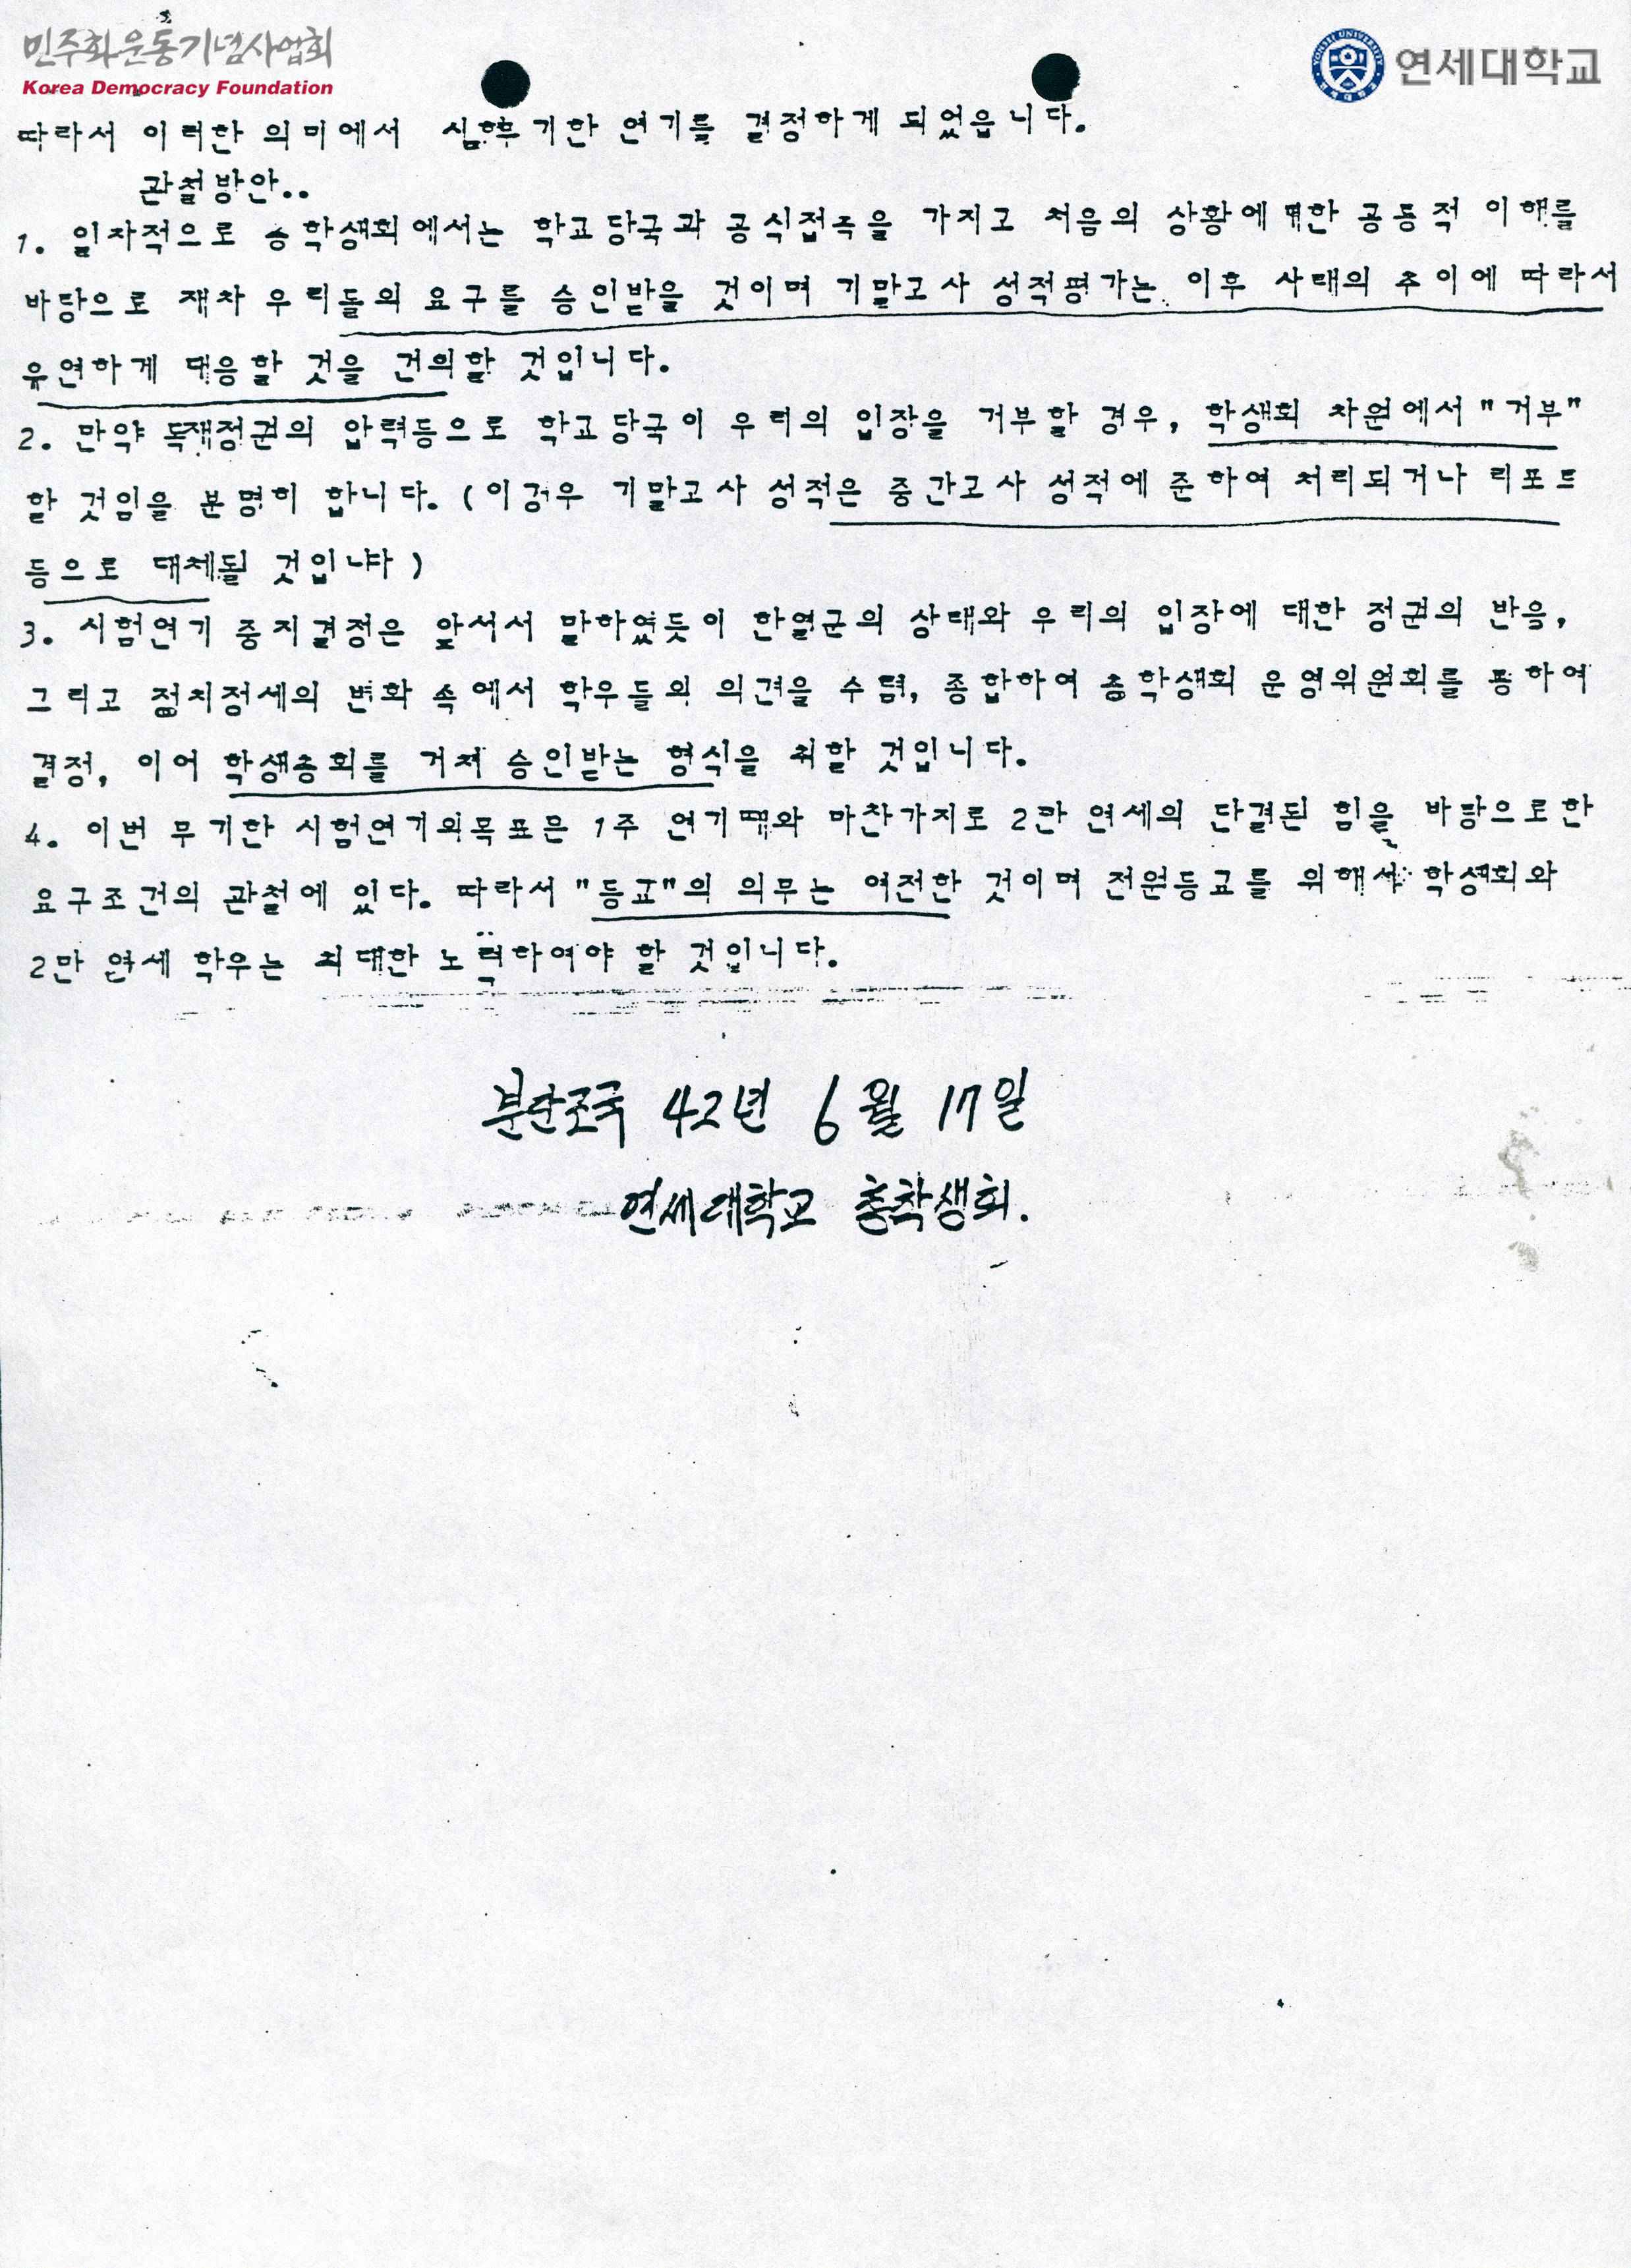 민주화운동기념사업회
Korea Democracy Foundation
연세대학교
따라서 이러한 의미에서 기한 연기를 결정하게 되었읍니다.
관철방안..
1. 일차적으로 총학생회에서는 학교당국과 공식접촉을 가지고 처음의 상황에 대한 공통적 이해를
바탕으로 재차 우리들의 요구를 승인받을 것이며 기말고사 성적평가는 이후 사태의 추이에 따라서
유연하게 대응할 것을 건의할 것입니다.
2. 만약 독재정권의 압력등으로 학교당국이 우리의 입장을 거부할 경우, 학생회 차원에서 "거부"
할 것임을 분명히 합니다. (이경우 기말고사 성적은 중간고사 성적에 준하여 처리되거나 리포트
등으로 대체될 것입니다)
3. 시험연기 중지결정은 앞서서 말하였듯이 한열군의 상태와 우리의 입장에 대한 정권의 반응,
그리고 정치정세의 변화 속에서 학우들의 의견을 수렴, 종합하여 총학생회 운영위원회를 통하여
결정, 이어 학생총회를 거쳐 승인받는 형식을 취할 것입니다.
4. 이번 무기한 시험연기의목표은 1주 연기때와 마찬가지로 2만 연세의 단결된 힘을 바탕으로한
요구조건의 관철에 있다. 따라서 "등교"의 의무는 여전한 것이며 전원등교를 위해서 학생회와
2만 연세 학우는 최대한 노력하여야 할 것입니다.
분단조국 42년 6월 17일
연세대학교 총학생회.